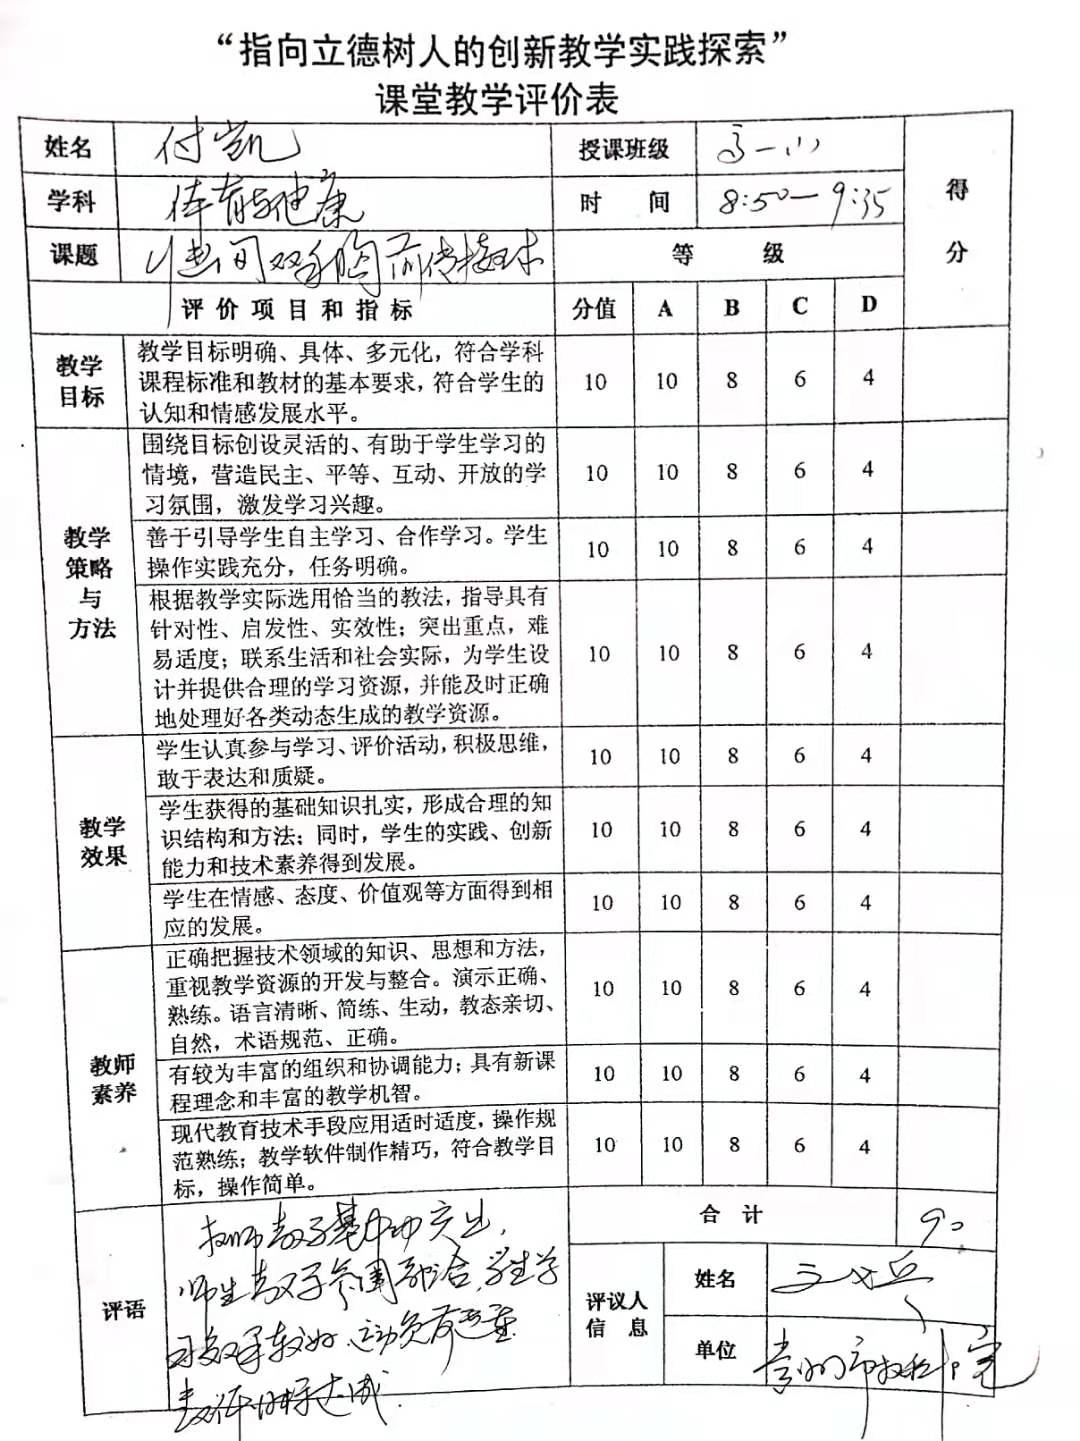 “指向立德树人的创新教学实践探索”
课堂教学评价表
姓名 付凯 授课班级 高一 得
学科 体育与健康 时 间 8:50—9:35
课题 行进间双手胸前传接球 等 级 分
评价项目和指标 分值 A B C D
教学
目标
教学目标明确、具体、多元化，符合学科
课程标准和教材的基本要求，符合学生的
认知和情感发展水平。
10 10 8 6 4
教学
策略
与
方法
围绕目标创设灵活的、有助于学生学习的
情境，营造民主、平等、互动、开放的学
习氛围，激发学习兴趣。
10 10 8 6 4
善于引导学生自主学习、合作学习。学生
操作实践充分，任务明确。
10 10 8 6 4
根据教学实际选用恰当的教法，指导具有
针对性、启发性、实效性；突出重点，难
易适度；联系生活和社会实际，为学生设
计并提供合理的学习资源，并能及时正确
地处理好各类动态生成的教学资源。
10 10 8 6 4
教学
效果
学生认真参与学习、评价活动，积极思维，
敢于表达和质疑。
10 10 8 6 4
学生获得的基础知识扎实，形成合理的知
识结构和方法；同时，学生的实践、创新
能力和技术素养得到发展。
10 10 8 6 4
学生在情感、态度、价值观等方面得到相
应的发展。
10 10 8 6 4
教师
素养
正确把握技术领域的知识、思想和方法，
重视教学资源的开发与整合。演示正确、
熟练。语言清晰、简练、生动，教态亲切、
自然，术语规范、正确。
10 10 8 6 4
有较为丰富的组织和协调能力；具有新课
程理念和丰富的教学机智。
10 10 8 6 4
现代教育技术手段应用适时适度，操作规
范熟练；教学软件制作精巧，符合教学目
标，操作简单。
10 10 8 6 4
评语
教师教学基本功突出，
师生教学氛围融合，学生学
习效果较好，运动负荷适宜
教学目标达成.
合 计 90
评议人
信 息
姓名
单位 常州市教科院